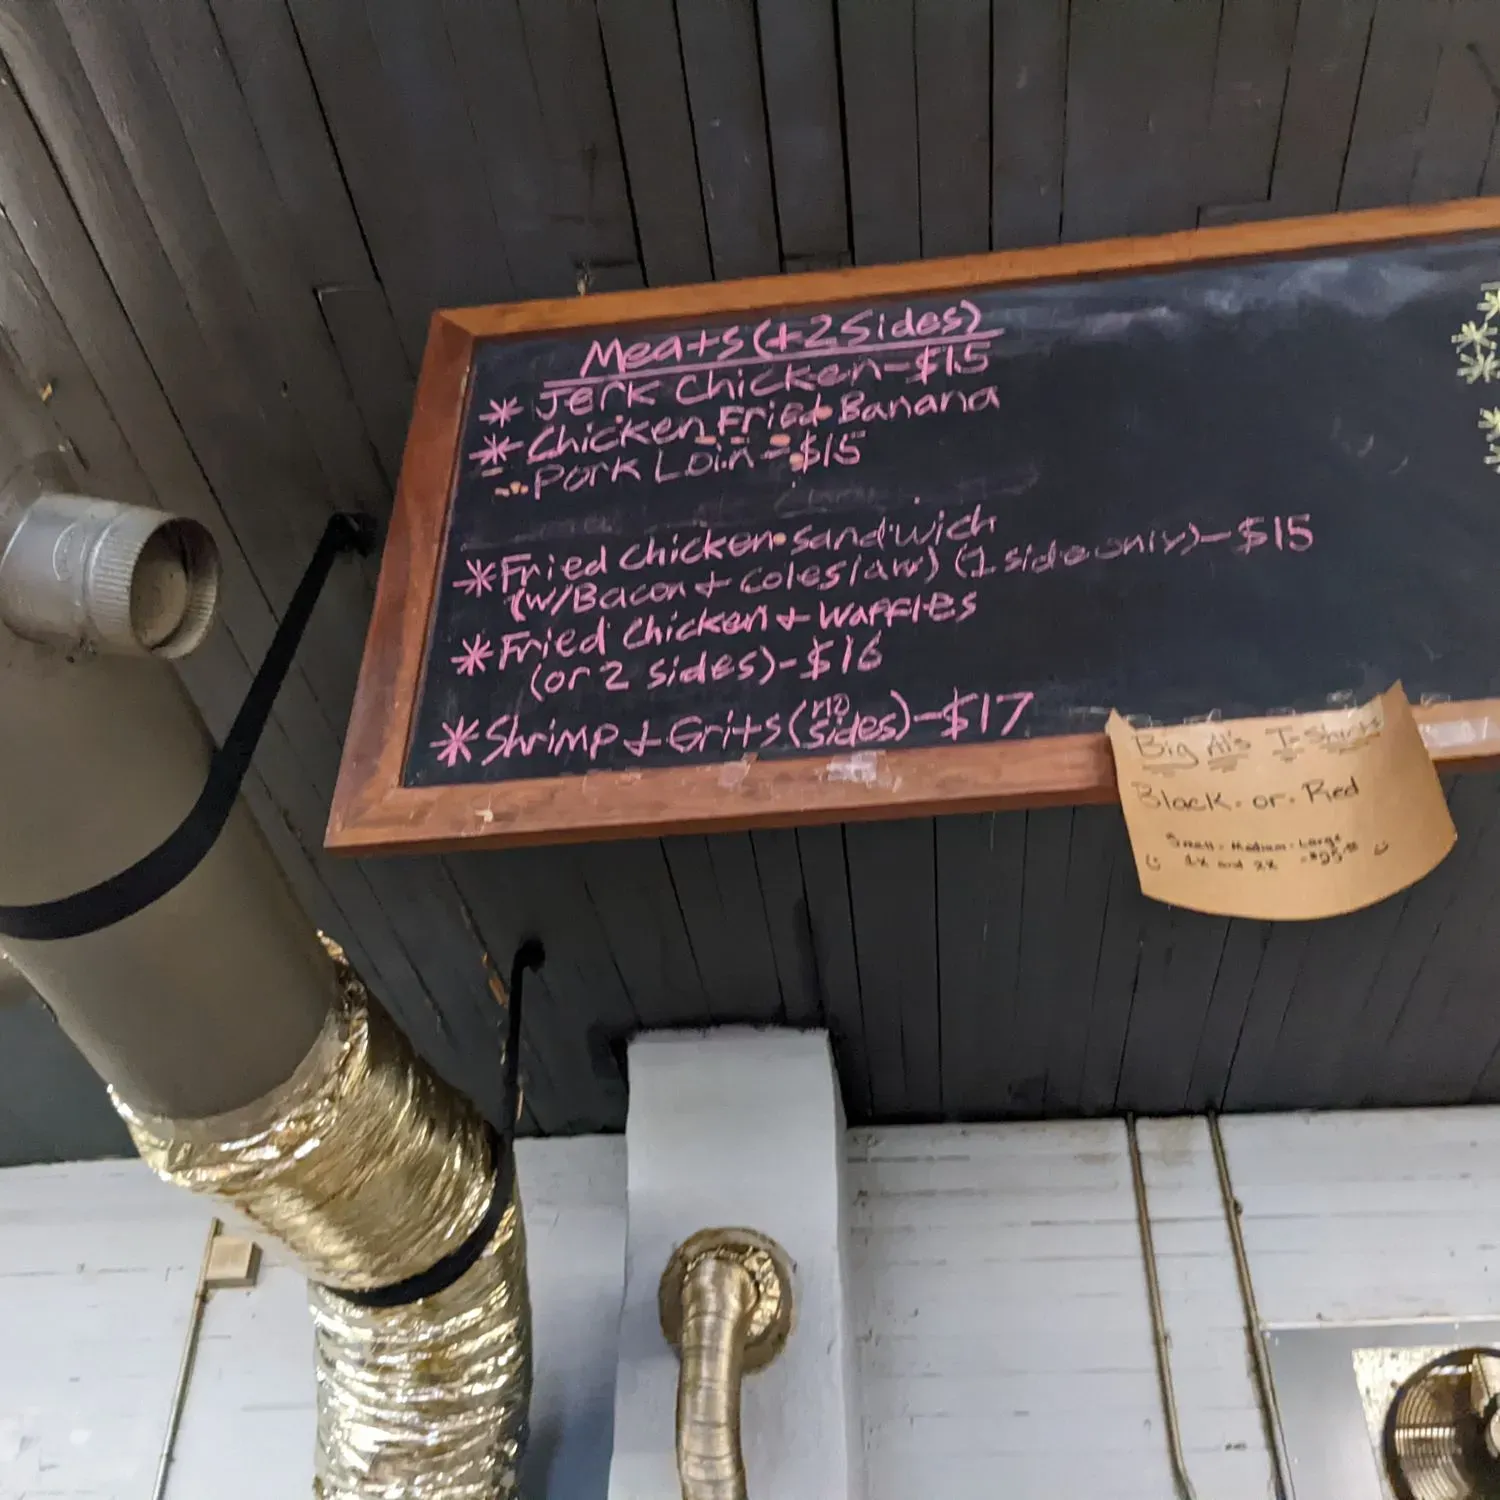 Meats (+2 Sides)
* Jerk Chicken - $15
* Chicken Fried Banana
Pork Loin - $15
* Fried Chicken Sandwich
(w/Bacon + Coleslaw) (1 side only) - $15
* Fried Chicken + Waffles
(or 2 sides) - $16
* Shrimp + Grits (no sides) - $17
Big Al's T-Shirts
Black - or - Red
Small - Medium - Large
1x and 2x - $25.00